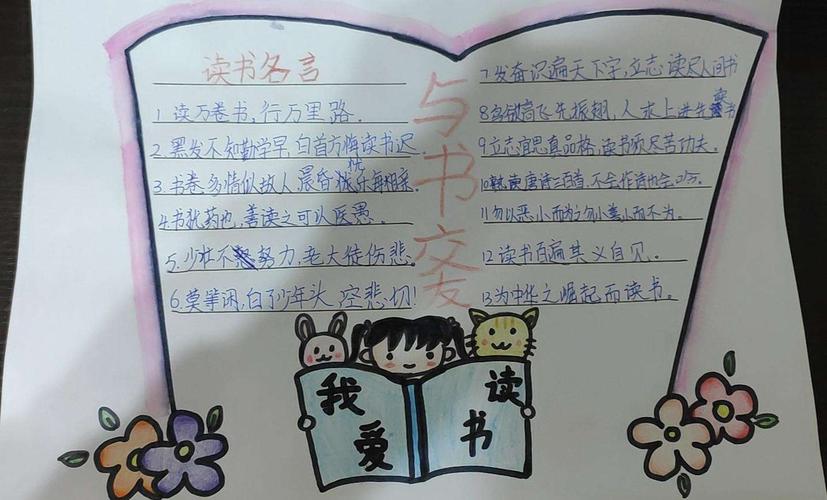 读书名言
1 读万卷书,行万里路.
2.黑发不知勤学早,白首方悔读书迟
3 书卷多情似故人,晨昏忧乐每相亲
4.书犹药也,善读之可以医愚.
5.少壮不努力,老大徒伤悲.
6.莫等闲,白了少年头,空悲切!
与书交友
7发奋识遍天下字,立志读尽人间书
8鸟欲高飞先振翅,人求上进先读书
9立志宜思真品格,读书须尽苦功夫.
10熟读唐诗三百首,不会作诗也会吟.
11勿以恶小而为之勿以善小而不为.
12读书百遍其义自见.
13为中华之崛起而读书.
我爱
读书